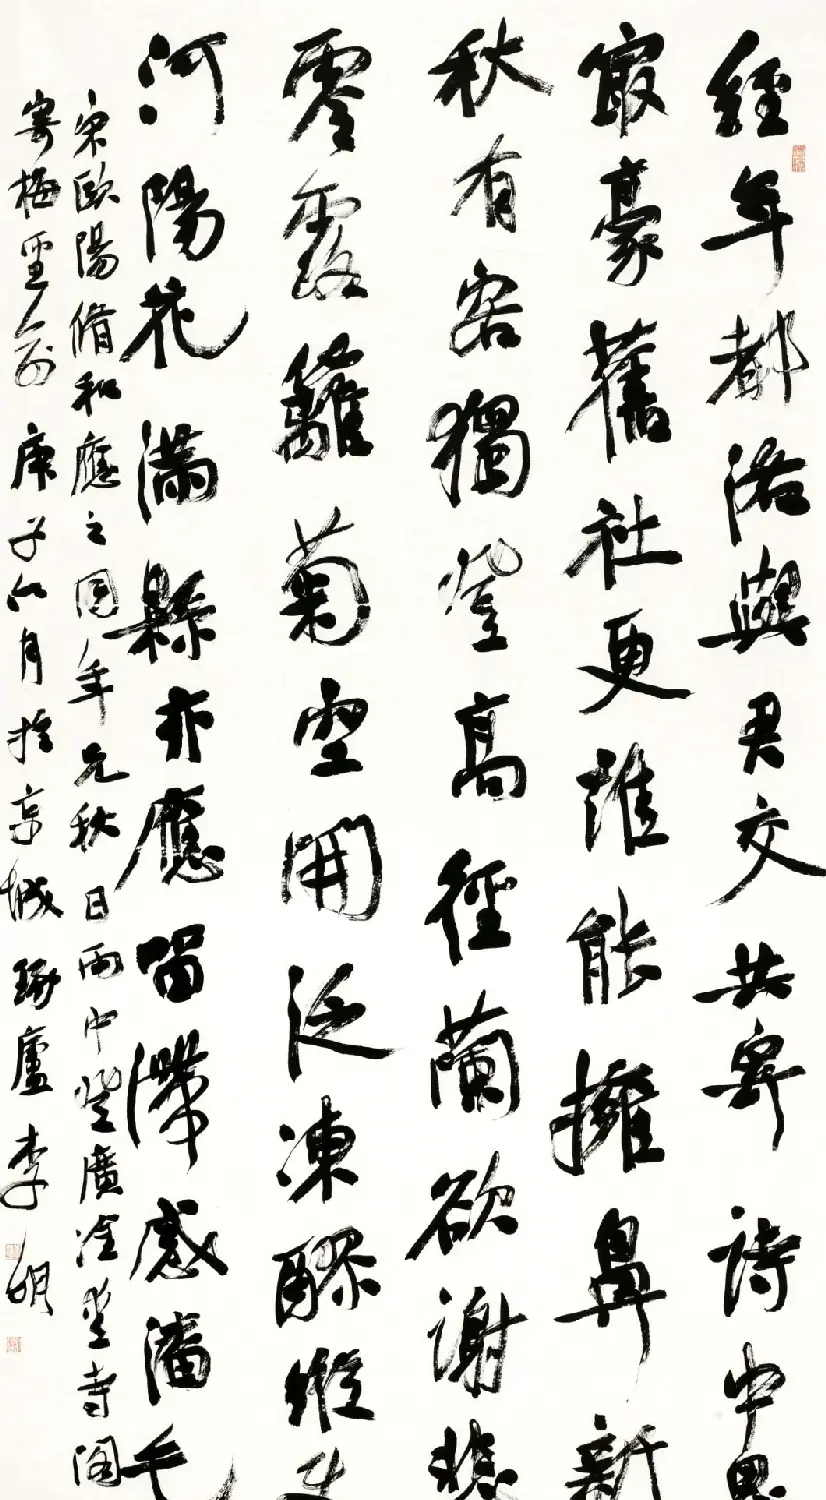 經年都洛與君交共寄詩中思
冣豪舊社更誰能擁鼻新
秋有客獨登高徑蘭欲謝悲
零露籬菊空開泛凍醪縱使
河陽花滿縣亦應留滯感潘毛
宋歐陽脩和應之同年元秋日雨中登廣寺閣
寄梅聖俞庚子月於京城琢廬李